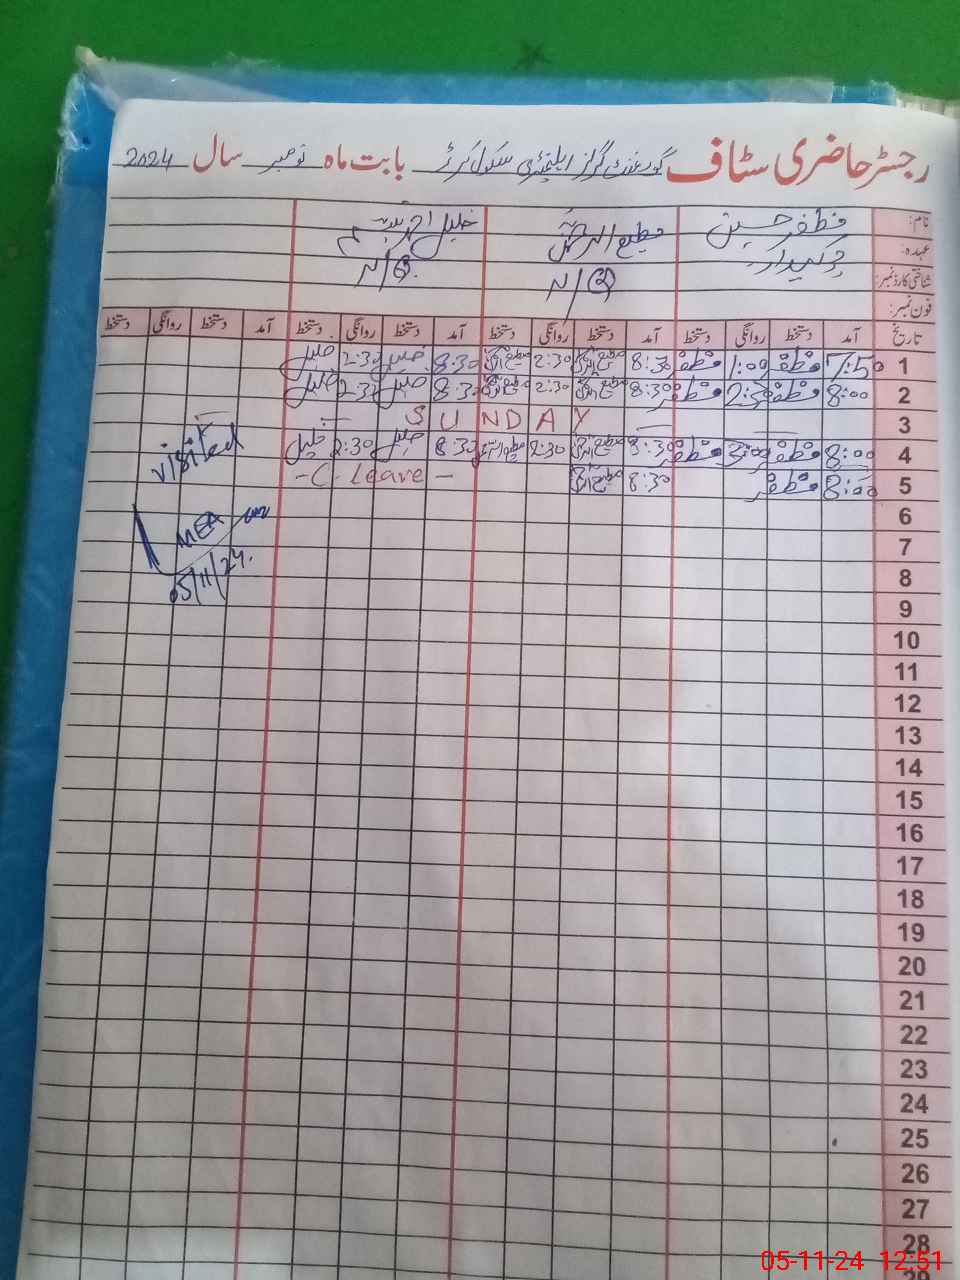 رجسٹر حاضری سٹاف گورنمنٹ گرلز ایلیمنٹری سکول بابت ماہ نومبر سال 2024
نام: مظفر حسین مطیع الرحمن خلیل احمد
عہدہ: چوکیدار N/Q N/Q
شناختی کارڈ نمبر:
فون نمبر:
تاریخ آمد دستخط روانگی دستخط آمد دستخط روانگی دستخط آمد دستخط روانگی دستخط آمد دستخط روانگی دستخط
1 7:50 مظفر 1:00 مظفر 8:30 مطیع الرحمن 2:30 مطیع الرحمن 8:30 خلیل 2:30 خلیل
2 8:00 مظفر 2:30 مظفر 8:30 مطیع الرحمن 2:30 مطیع الرحمن 8:30 خلیل 2:30 خلیل
3 SUNDAY
4 8:00 مظفر 3:00 مظفر 8:30 مطیع الرحمن 2:30 مطیع الرحمن 8:30 خلیل 2:30 خلیل
5 8:00 مظفر 8:30 مطیع الرحمن - C. Leave -
visited
MEA
05/11/24.
6
7
8
9
10
11
12
13
14
15
16
17
18
19
20
21
22
23
24
25
26
27
28
05-11-24 12:51